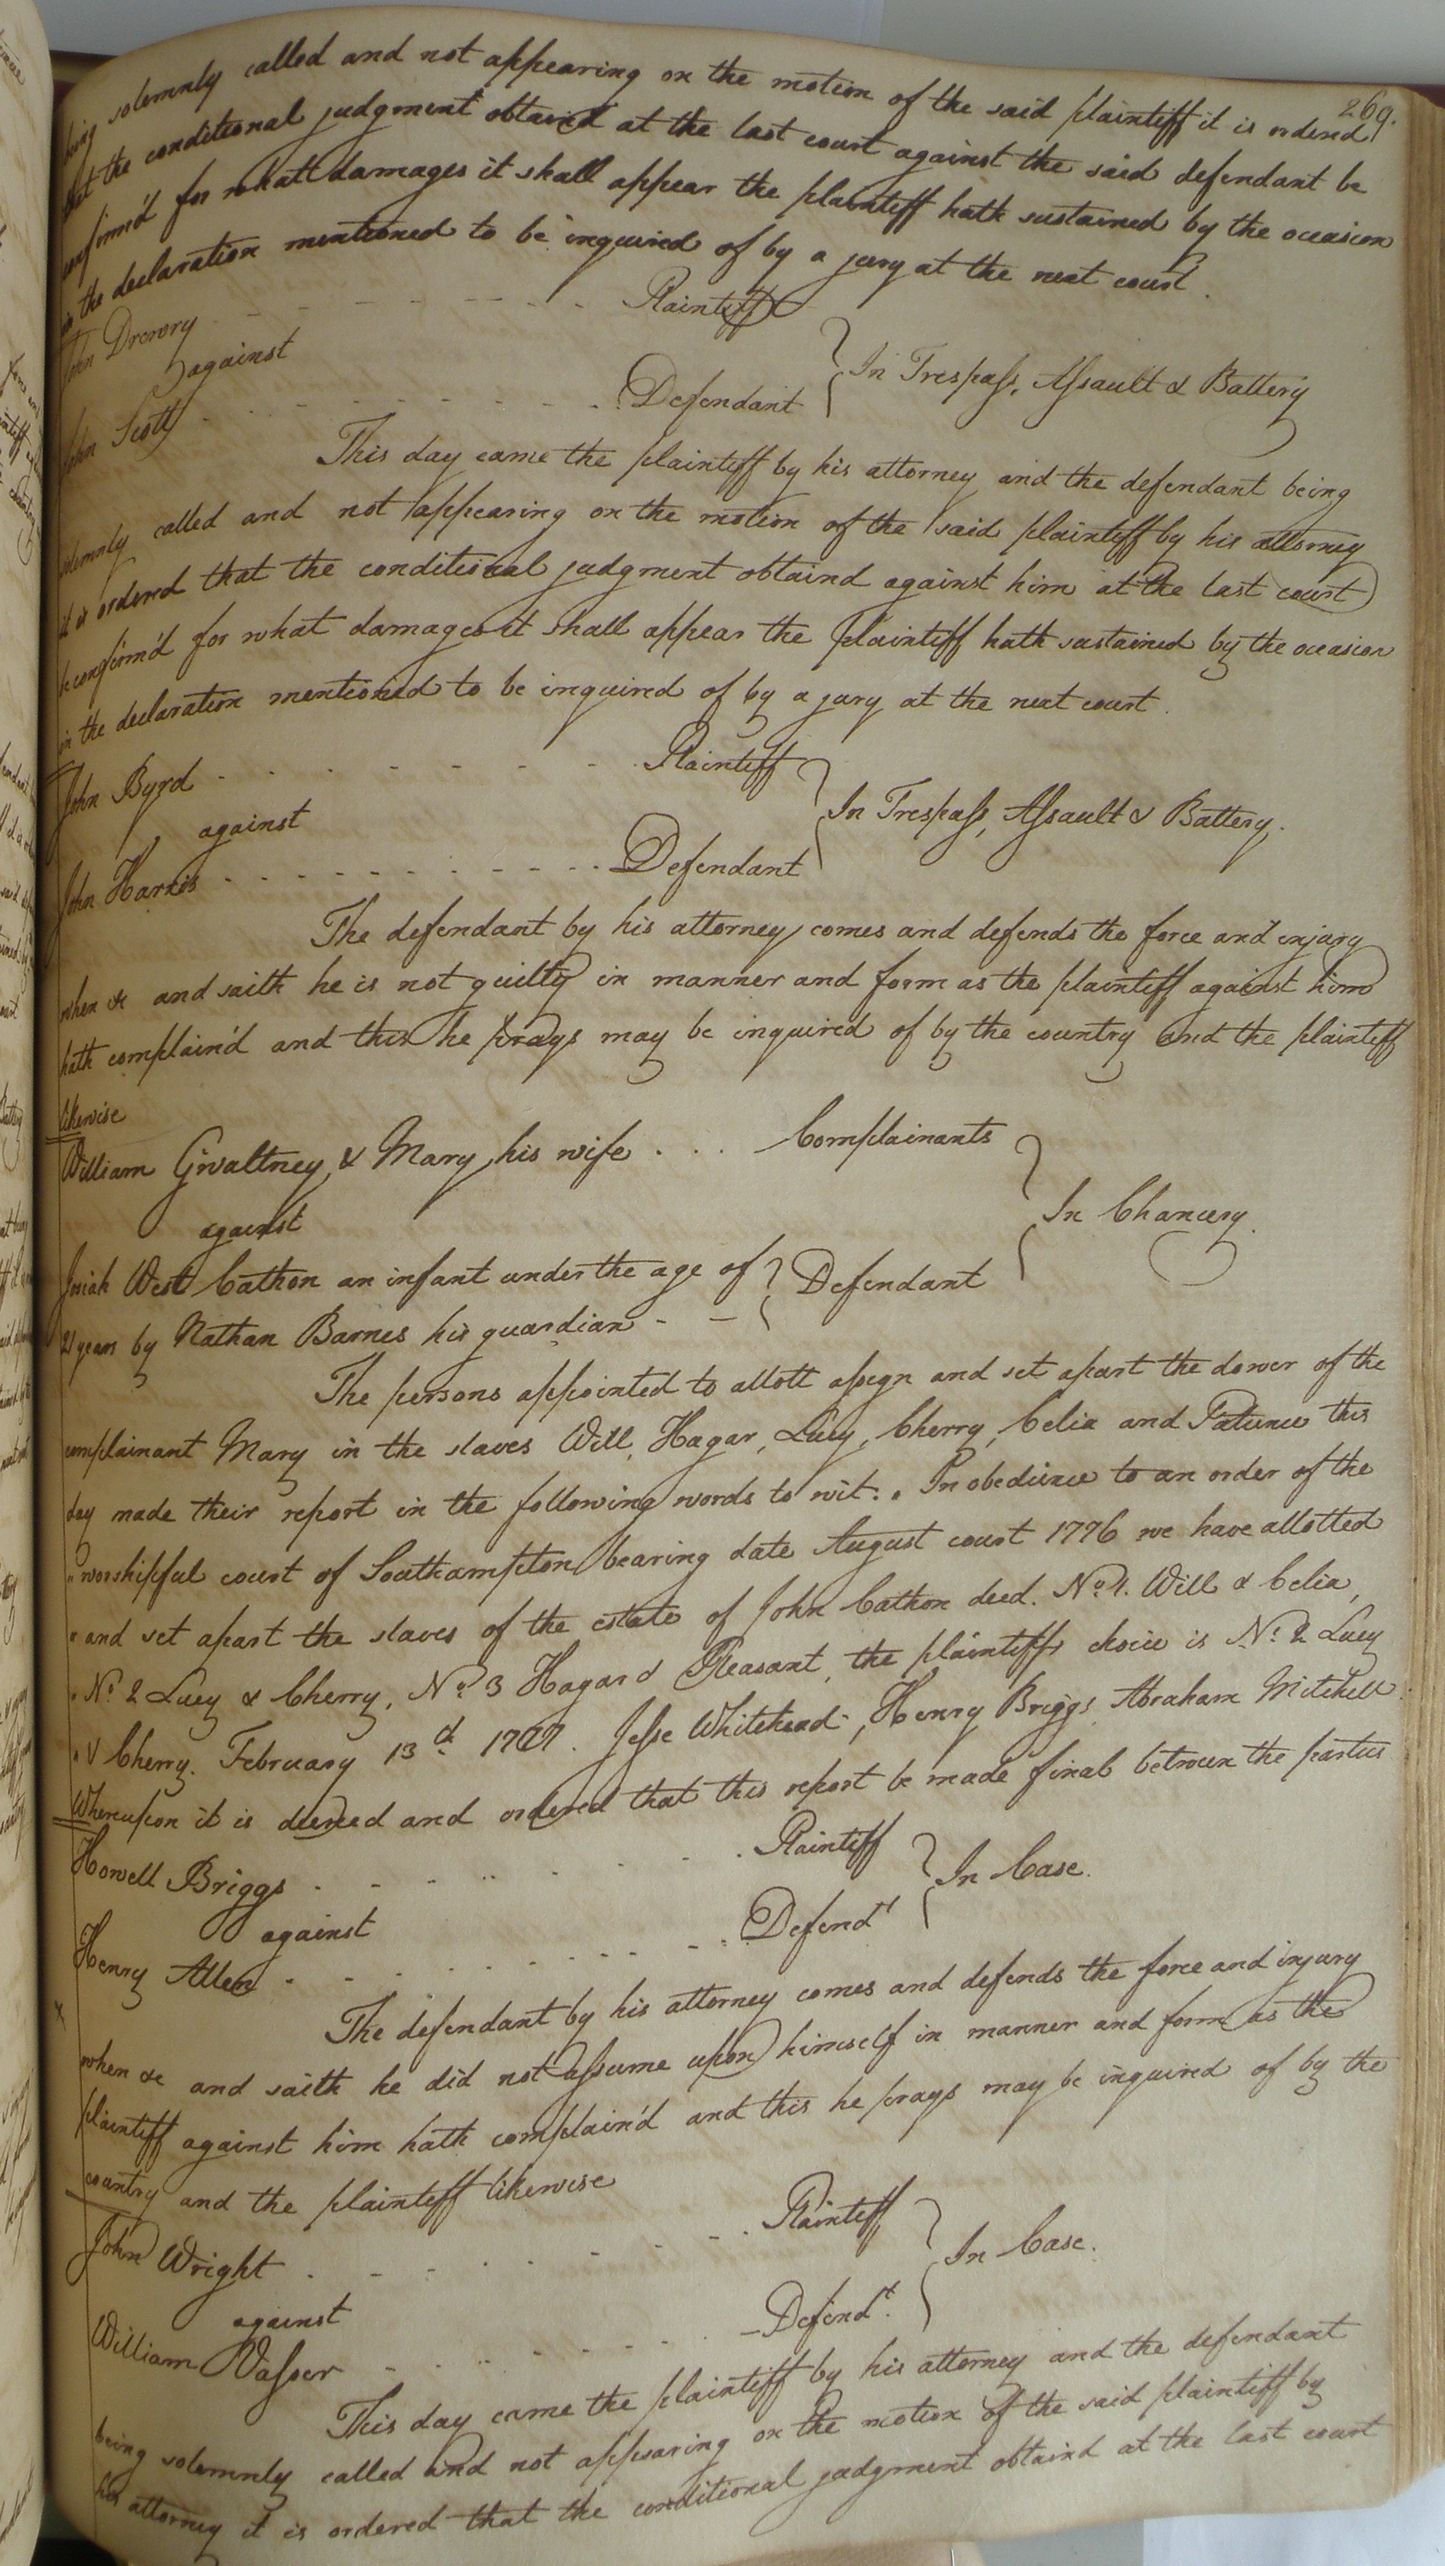 269.
being solemnly called and not appearing on the motion of the said plaintiff it is ordered
that the conditional judgment obtaind at the last court against the said defendant be
confirm'd for what damages it shall appear the plaintiff hath sustained by the occasion
in the declaration mentioned to be inquired of by a jury at the next court.
John Drewry - - - - - - - Plaintiff
against
In Trespass, Assault & Battery
John Scott - - - - - - - Defendant
This day came the plaintiff by his attorney and the defendant being
solemnly called and not appearing on the motion of the said plaintiff by his attorney
it is ordered that the conditional judgment obtaind against him at the last court
be confirm'd for what damages it shall appear the plaintiff hath sustained by the occasion
in the declaration mentioned to be inquired of by a jury at the next court.
John Byrd - - - - - - - Plaintiff
against
In Trespass, Assault & Battery.
John Harris - - - - - - - Defendant
The defendant by his attorney comes and defends the force and injury
when &c and saith he is not guilty in manner and form as the plaintiff against him
hath complain'd and this he prays may be inquired of by the country and the plaintiff
likewise
William Gwaltney & Mary his wife . . . Complainants
against
In Chancery.
Josiah West Cathon an infant under the age of
21 years by Nathan Barnes his guardian - - Defendant
The persons appointed to allott assign and set apart the dower of the
complainant Mary in the slaves Will, Hagar, Lucy, Cherry, Celia and Patience this
day made their report in the following words to wit: " In obedience to an order of the
" worshipful court of Southampton bearing date August court 1776 we have allotted
" and set apart the slaves of the estate of John Cathon deed. No. 1. Will & Celia,
" No. 2 Lucy & Cherry, No. 3 Hagar & Pleasant, the plaintiffs choice is No. 2 Lucy
" & Cherry. February 13th 1777. Jesse Whitehead, Henry Briggs, Abraham Mitchell.
Whereupon it is decreed and ordered that this report be made final between the parties
Howell Briggs - - - - - - - Plaintiff
against
In Case.
Henry Allen - - - - - - - Defendt
The defendant by his attorney comes and defends the force and injury
x
when &c and saith he did not assume upon himself in manner and form as the
plaintiff against him hath complain'd and this he prays may be inquired of by the
country and the plaintiff likewise
John Wright - - - - - - - Plaintiff
against
In Case.
William Vasser - - - - - - - Defendt.
This day came the plaintiff by his attorney and the defendant
being solemnly called and not appearing on the motion of the said plaintiff by
his attorney it is ordered that the conditional judgment obtaind at the last court